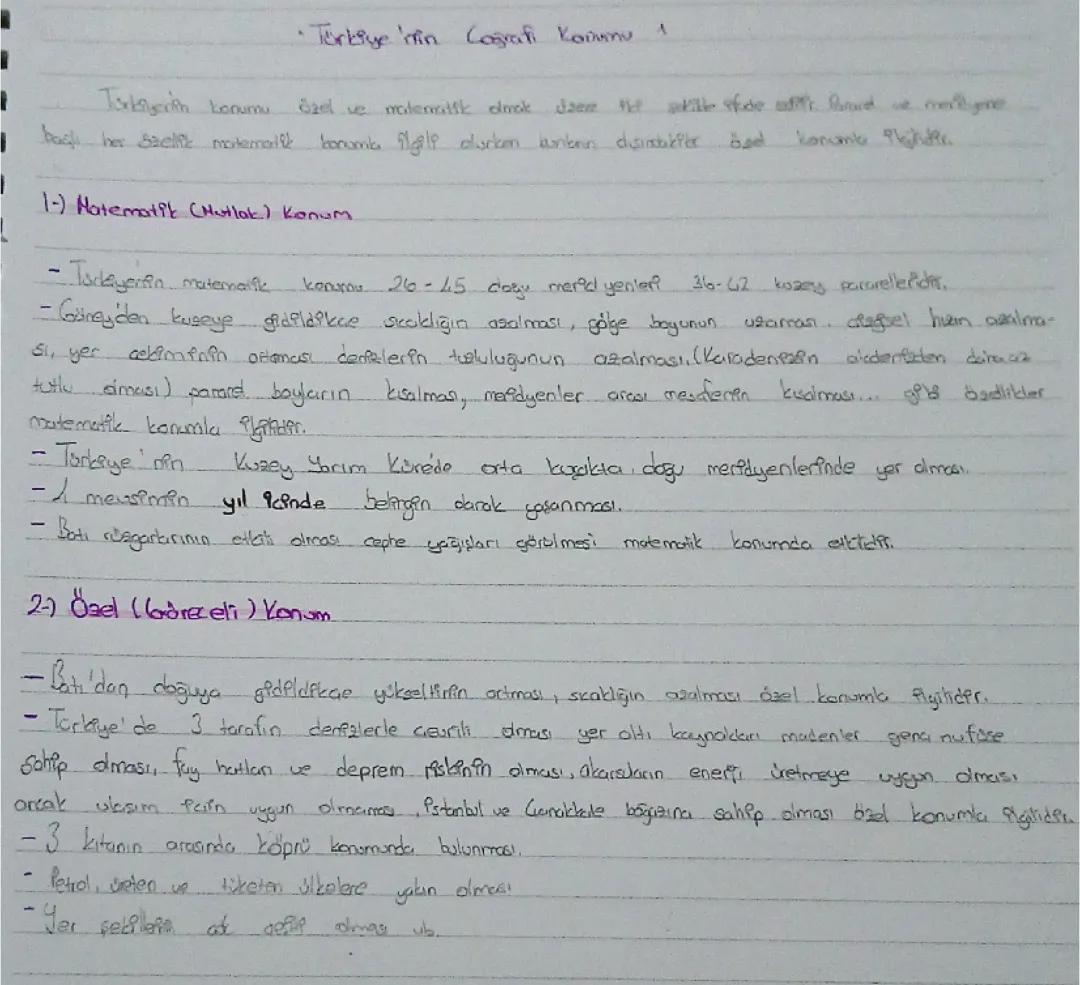 • Türkiye'nin Coğrafi Konumu 1
Türkiye'nin konumu özel ve matematik olmak üzere iki şekilde ifade edilir. Paralel ve meridyene
bağlı her özellik matematik konumla ilgili olurken bunların dışındakiler özel konumla ilgilidir.
1-) Matematik (Mutlak) Konum
- Türkiye'nin matematik konumu 26-45 doğu meridyenleri 36-42 kuzey pararelleridir.
- Güney'den kuzeye gidildikçe sıcaklığın azalması, gölge boyunun uzaması, çizgisel hızın azalma-
sı, yer çekiminin artması denizlerin tuzluluğunun azalması, (Karadenizin akdenizden daha az
tutlu olması) pararel boylarının kısalması, meridyenler arası mesafenin kısalması... gibi özellikler
matematik konumla ilgilidir.
- Türkiye'nin Kuzey Yarım Kürede orta kuşakta, doğu meridyenlerinde yer alması.
- 4 mevsimin yıl içinde belirgin olarak yaşanması.
- Batı rüzgarlarının etkili olması cephe yağışları görülmesi matematik konumda etkilidir.
2-) Özel (Göreceli) Konum
- Batı'dan doğuya gidildikçe yükseltinin artması, sıcaklığın azalması özel konumla ilgilidir.
- Türkiye'de 3 tarafın denizlerle çevrili olması yer altı kaynakları madenler genç nufüse
Sahip olması, fay hatları ve deprem riskinin olması, akarsuların enerji üretmeye uygun olması
ancak ulaşım için uygun olmaması, istanbul ve Çanakkale boğazına sahip olması özel konumla ilgilidir.
- 3 kıtanın arasında köprü konumunda bulunması.
- Petrol, üreten ve tüketen ülkelere yakın olması
- Yer şekillerin çok çeşitli olması vb.